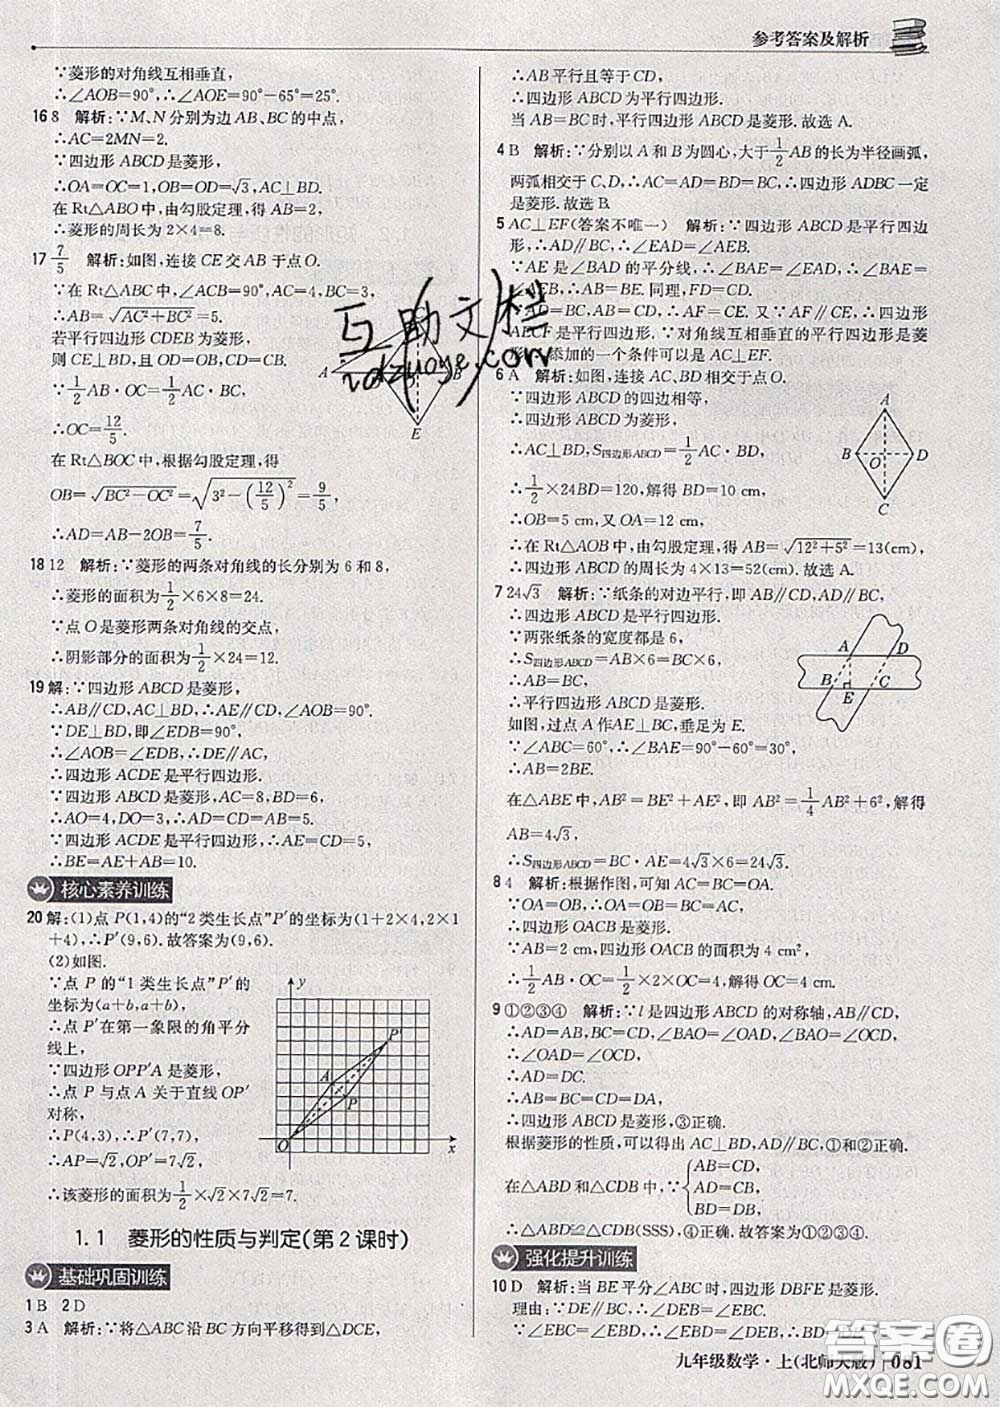 参考答案及解析
∵菱形的对角线互相垂直,
∴∠AOB=90°,∴∠AOE=90°-65°=25°.
16 8 解析:∵M、N分别为边AB、BC的中点,
∴AC=2MN=2.
∵四边形ABCD是菱形,
∴OA=OC=1,OB=OD=√3,AC⊥BD.
在Rt△ABO中,由勾股定理,得AB=2,
∴菱形的周长为2×4=8.
17 7/5 解析:如图,连接CE交AB于点O.
∵在Rt△ABC中,∠ACB=90°,AC=4,BC=3,
∴AB=√(AC²+BC²)=5.
若平行四边形CDEB为菱形,
则CE⊥BD,
∵1/2AB·OC=1/2AC·BC,
∴OC=12/5.
在Rt△BOC中,根据勾股定理,得
OB=√(BC²-OC²)=√(3²-(12/5)²)=9/5,
∴AD=AB-2OB=7/5.
18 12 解析:∵菱形的两条对角线的长分别为6和8,
∴菱形的面积=1/2×6×8=24.
∵点O是菱形两条对角线的交点,
∴阴影部分的面积=1/2×24=12.
19 解:∵四边形ABCD是菱形,
∴AB∥CD,AC⊥BD,∴AE∥CD,∠AOB=90°.
∵DE⊥BD,即∠EDB=90°,
∴∠AOB=∠EDB,∴DE∥AC,
∴四边形ACDE是平行四边形.
∵四边形ABCD是菱形,AC=8,BD=6,
∴AO=4,DO=3,∴AD=CD=AB=5.
∵四边形ACDE是平行四边形,∴AE=CD=5,
∴BE=AE+AB=10.
核心素养训练
20 解:(1)点P(1,4)的“2类生长点”P′的坐标为(1+2×4,2×1
+4),∴P′(9,6).故答案为(9,6).
(2)如图.
∵点P的“1类生长点”P′的
坐标为(a+b,a+b),
∴点P′在第一象限的角平分
线上,
∵四边形OPP′A是菱形,
∴点P与点A关于直线OP′
对称,
∴P(4,3),∴P′(7,7),
∴AP=√2,OP′=7√2,
∴该菱形的面积为1/2×√2×7√2=7.
y
P′
A
P
O
x
1.1 菱形的性质与判定(第2课时)
基础巩固训练
1 B 2 D
3 A 解析:∵将△ABC沿BC方向平移得到△DCE,
∴AB平行且等于CD,
∴四边形ABCD为平行四边形.
当AB=BC时,平行四边形ABCD是菱形.故选A.
4 B 解析:∵分别以A和B为圆心,大于1/2AB的长为半径画弧,
两弧相交于C、D,∴AC=AD=BD=BC,∴四边形ADBC一定
是菱形.故选B.
5 AC⊥EF(答案不唯一) 解析:∵四边形ABCD是平行四边
形,∴AD∥BC,∴∠EAF=∠AEB.
∵AE是∠BAD的平分线,∴∠BAE=∠EAF,∴∠BAE=
∠AEB,∴AB=BE.同理,FD=CD.
∵AB=CD,AD=BC,∴AF=CE.又∵AF∥CE,∴四边形
AECF是平行四边形.∵对角线互相垂直的平行四边形是菱
形,∴添加的一个条件可以是AC⊥EF.
6 A 解析:如图,连接AC、BD相交于点O.
∵四边形ABCD的四边相等,
∴四边形ABCD为菱形,
∴AC⊥BD,S四边形ABCD=1/2AC·BD,
∴1/2×24BD=120,解得BD=10 cm,
∴OB=5 cm,又OA=12 cm,
∴在Rt△AOB中,由勾股定理,得AB=√(12²+5²)=13(cm),
∴四边形ABCD的周长为4×13=52(cm).故选A.
A
B O D
C
7 24√3 解析:∵纸条的对边平行,即AB∥CD,AD∥BC,
∴四边形ABCD是平行四边形.
∵两张纸条的宽度都是6,
∴S四边形ABCD=AB×6=BC×6,
∴AB=BC,
∴平行四边形ABCD是菱形.
如图,过点A作AE⊥BC,垂足为E.
∵∠ABC=60°,∴∠BAE=90°-60°=30°,
∴AB=2BE.
A D
B C
E
在△ABE中,AB²=BE²+AE²,即AB²=1/4AB²+6²,解得
AB=4√3,
∴S四边形ABCD=BC·AE=4√3×6=24√3.
8 4 解析:根据作图,可知AC=BC=OA.
∵OA=OB,∴OA=OB=BC=AC,
∴四边形OACB是菱形.
∵AB=2 cm,四边形OACB的面积为4 cm²,
∴1/2AB·OC=1/2×2×OC=4,解得OC=4 cm.
9 ①②③④ 解析:∵l是四边形ABCD的对称轴,AB∥CD,
∴AD=AB,BC=DC,∠BAO=∠DAO,∠BAO=∠OCD,
∴∠OAD=∠OCD,
∴AD=DC.
∴AB=BC=CD=DA,
∴四边形ABCD是菱形,③正确.
根据菱形的性质,可以得出AC⊥BD,AD∥BC,①和②正确.
在△ABD和△CDB中,{AB=CD,
AD=BC,
BD=DB,
∴△ABD≌△CDB(SSS),④正确.故答案为①②③④.
强化提升训练
10 D 解析:当BE平分∠ABC时,四边形DBFE是菱形.
理由:∵DE∥BC,∴∠DEB=∠EBC,
∵∠EBC=∠EBD,∴∠EBD=∠DEB,
九年级数学·上(北师大版) 081
互助文栏
A
E
答案圈
MXQE.COM